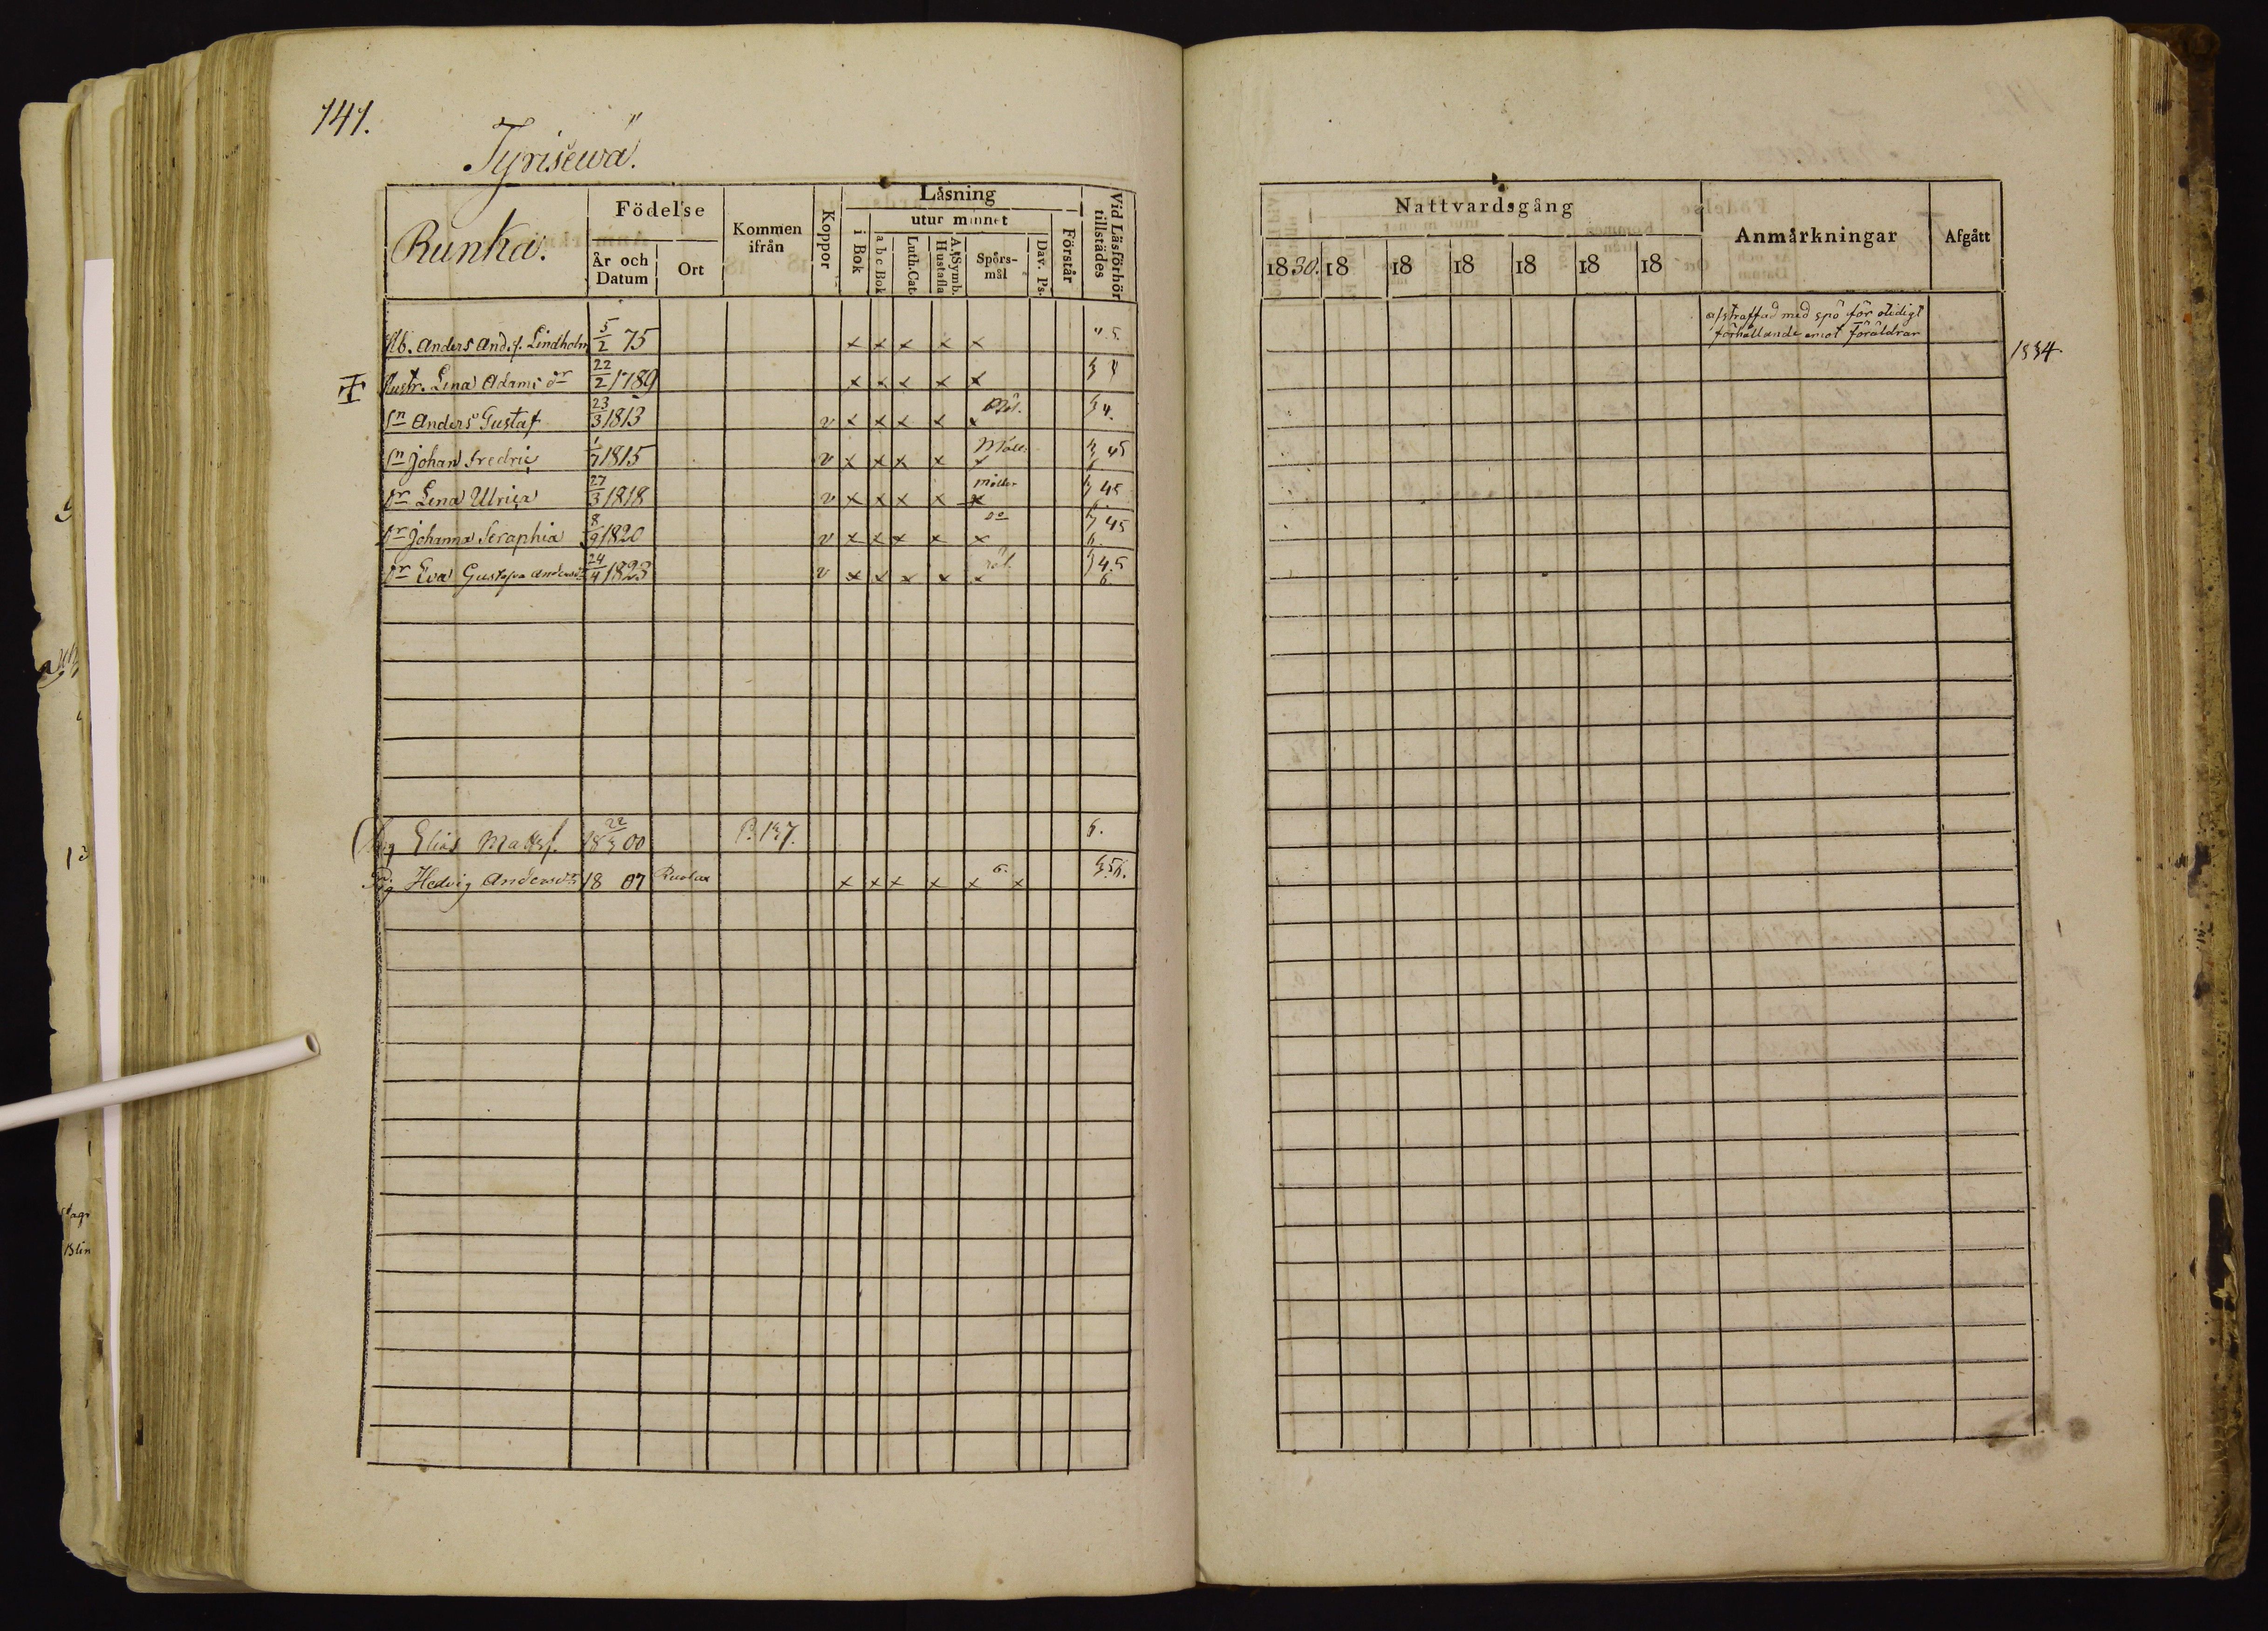 141.
Tyrisewä.
Runka.
Födelse
År och Datum
Ort
Kommen ifrån
Koppor
Läsning
utur minnet
i Bok
a b c Bok
Luth. Cat.
A. Symb. Hustafla
Spörs-mål
Dav. Ps.
Förstår
Vid Läsförhör tillstädes
Hb. Anders And.s. Lindholm 5/2 75 x x x x x
Hustr. Lena Adams dr 22/2 1789 x x x x x
Sn Anders Gustaf 23/3 1813 v x x x x x
Sn Johan Fredric 1/7 1815 v x x x x x
Dr Lena Ulrica 27/3 1818 v x x x x x 45
Dr Johanna Seraphia 8/9 1820 v x x x x do x 45
Dr Eva Gustafva Andersdr 24/4 1823 v x x x x x 4.5 6
Elias Matts s. 22/3 1800 P. 137. 6.
Pig Hedvig Andersdr 18 07 x x x x x 6. x 5.6.
Nattvardsgång
1830. 18 18 18 18 18 18
Anmärkningar
Afgått
afstraffad med spö för otidigt
förhållande emot Föräldrar
1834.